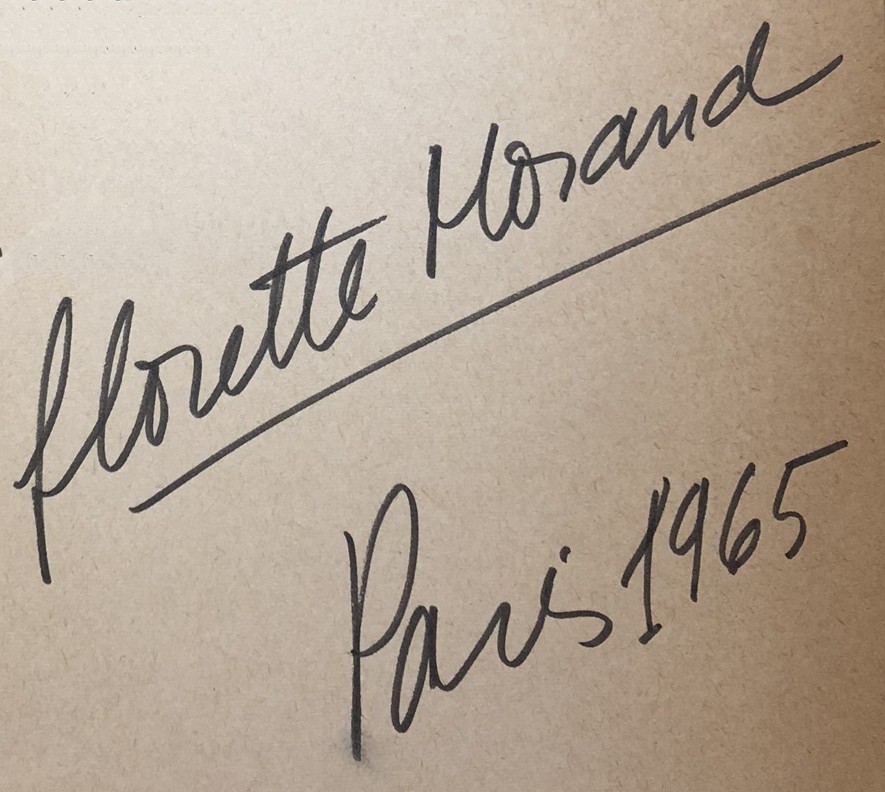 Florette Morand
Paris 1965